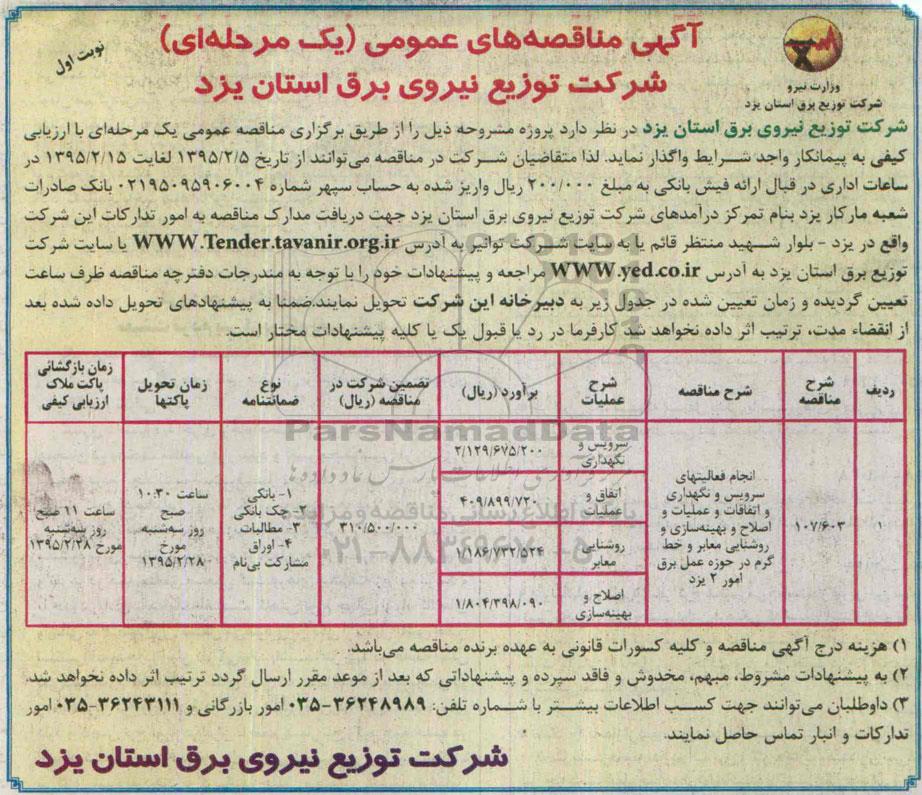 نوبت اول
آگهی مناقصه‌های عمومی (یک مرحله‌ای)
شرکت توزیع نیروی برق استان یزد
وزارت نیرو
شرکت توزیع برق استان یزد
شرکت توزیع نیروی برق استان یزد در نظر دارد پروژه مشروحه ذیل را از طریق برگزاری مناقصه عمومی یک مرحله‌ای با ارزیابی
کیفی به پیمانکار واجد شرایط واگذار نماید. لذا متقاضیان شرکت در مناقصه می‌توانند از تاریخ ۱۳۹۵/۲/۵ لغایت ۱۳۹۵/۲/۱۵ در
ساعات اداری در قبال ارائه فیش بانکی به مبلغ ۲۰۰/۰۰۰ ریال واریز شده به حساب سپهر شماره ۰۲۱۹۵۰۹۵۹۰۶۰۰۴ بانک صادرات
شعبه مارکار یزد بنام تمرکز درآمدهای شرکت توزیع نیروی برق استان یزد جهت دریافت مدارک مناقصه به امور تدارکات این شرکت
واقع در یزد - بلوار شهید منتظر قائم یا به سایت شرکت توانیر به آدرس WWW.Tender.tavanir.org.ir یا سایت شرکت
توزیع برق استان یزد به آدرس WWW.yed.co.ir مراجعه و پیشنهادات خود را با توجه به مندرجات دفترچه مناقصه ظرف ساعت
تعیین گردیده و زمان تعیین شده در جدول زیر به دبیرخانه این شرکت تحویل نمایند.ضمنا به پیشنهادهای تحویل داده شده بعد
از انقضاء مدت، ترتیب اثر داده نخواهد شد کارفرما در رد یا قبول یک یا کلیه پیشنهادات مختار است.
ردیف
شرح
مناقصه
شرح مناقصه
شرح
عملیات
برآورد (ریال)
تضمین شرکت در
مناقصه (ریال)
نوع
ضمانتنامه
زمان تحویل
پاکتها
زمان بازگشائی
پاکت ملاک
ارزیابی کیفی
۱
۱۰۷/۶۰۳
انجام فعالیتهای
سرویس و نگهداری
و اتفاقات و عملیات و
اصلاح و بهینه‌سازی و
روشنایی معابر و خط
گرم در حوزه عمل برق
امور ۲ یزد
سرویس و
نگهداری
۲/۱۲۹/۶۷۵/۲۰۰
اتفاق و
عملیات
۴۰۹/۸۹۹/۷۲۰
روشنایی
معابر
۱/۱۸۶/۷۳۲/۵۲۴
اصلاح و
بهینه‌سازی
۱/۸۰۴/۳۹۸/۰۹۰
۳۱۰/۵۰۰/۰۰۰
۱- بانکی
۲- چک بانکی
۳- مطالبات
۴- اوراق
مشارکت بی‌نام
ساعت ۱۰:۳۰
صبح
روز سه‌شنبه
مورخ
۱۳۹۵/۲/۲۸
ساعت ۱۱ صبح
روز سه‌شنبه
مورخ ۱۳۹۵/۲/۲۸
ParsNamadData
۱) هزینه درج آگهی مناقصه و کلیه کسورات قانونی به عهده برنده مناقصه می‌باشد.
۲) به پیشنهادات مشروط، مبهم، مخدوش و فاقد سپرده و پیشنهاداتی که بعد از موعد مقرر ارسال گردد ترتیب اثر داده نخواهد شد.
۳) داوطلبان می‌توانند جهت کسب اطلاعات بیشتر با شماره تلفن: ۳۶۲۴۸۹۸۹-۰۳۵ امور بازرگانی و ۳۶۲۴۳۱۱۱-۰۳۵ امور
تدارکات و انبار تماس حاصل نمایند.
شرکت توزیع نیروی برق استان یزد